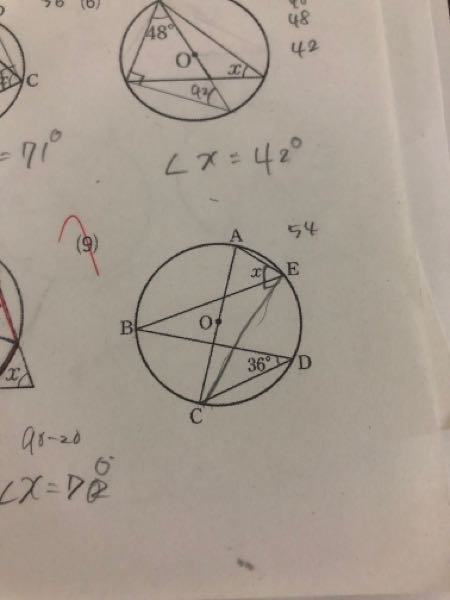 (6)
48
42
48°
O
x
C
= 71°
∠x = 42°
(9)
54
A
x
E
B
O
36°
D
C
x
90-20
∠x = 70°